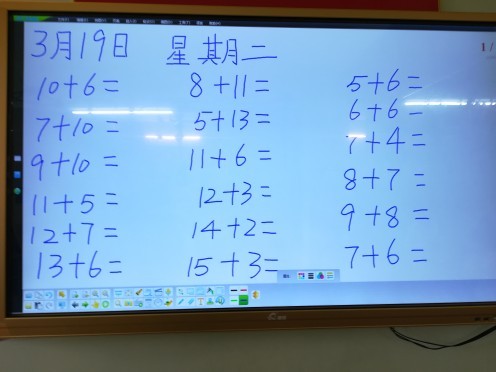 3月19日 星期二
10+6= 8+11= 5+6=
7+10= 5+13= 6+6=
9+10= 11+6= 7+4=
11+5= 12+3= 8+7=
12+7= 14+2= 9+8=
13+6= 15+3= 7+6=
1/